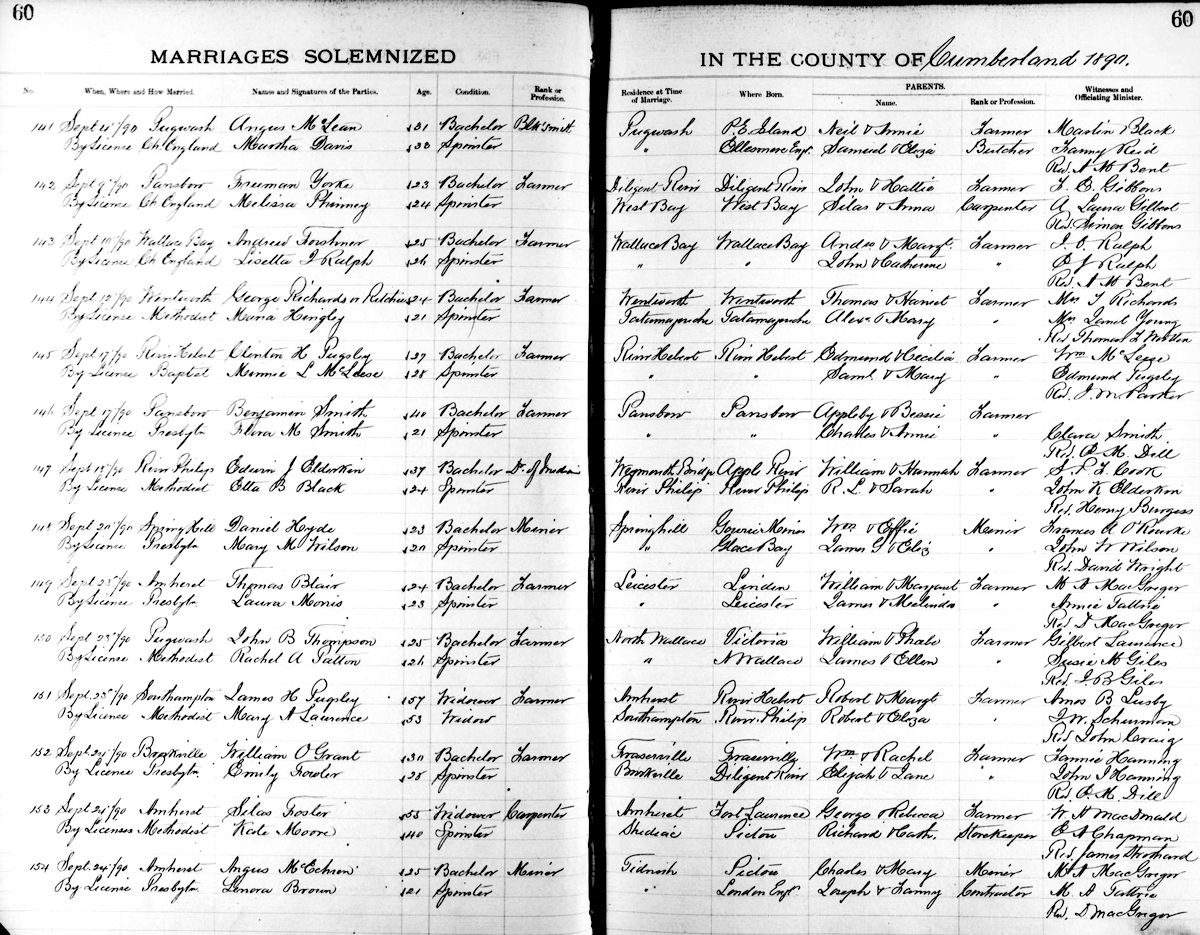 60
60
MARRIAGES SOLEMNIZED
IN THE COUNTY OF Cumberland 1890.
No. When, Where and How Married. Names and Signatures of the Parties. Age. Condition. Rank or Profession. Residence at Time of Marriage. Where Born. PARENTS. Name. Rank or Profession. Witnesses and Officiating Minister.
141 Sept 4th/90 Pugwash Angus McLean 31 Bachelor Blksmith Pugwash P.E. Island Neil & Annie Farmer Martin Black
By License Ch England Martha Davis 33 Spinster " Ellesmere Engl. Samuel & Eliza Butcher Fanny Reid
Rev. A M Bent
142 Sept 9th/90 Parrsboro Freeman Yorke 23 Bachelor Farmer Diligent River Diligent River John & Hallie Farmer L. B. Gibbons
By License Ch England Melissa Phinney 24 Spinster West Bay West Bay Silas & Anna Carpenter A Laura Gilbert
Rev. Simon Gibbons
143 Sept 10th/90 Wallace Bay Andrew Forshner 25 Bachelor Farmer Wallace Bay Wallace Bay Andw & Margt. Farmer J. O. Ralph
By License Ch England Lisetta J Ralph 26 Spinster " " John & Catherine " B J Ralph
Rev. A M Bent
144 Sept 12th/90 Wentworth George Richards or Ritchie 24 Bachelor Farmer Wentworth Wentworth Thomas & Harriet Farmer Mrs T Richards
By License Methodist Maria Hengley 21 Spinster Tatamagouche Tatamagouche Alexr & Mary " Mrs Janet Young
Rev Thomas L
145 Sept 17/90 River Hebert Clinton H Pugsley 27 Bachelor Farmer River Hebert River Hebert Edmund & Cecilia Farmer Wm McLeese
By License Baptist Minnie L McLeese 28 Spinster " " Saml. & Mary " Edmund Pugsley
Rev. J. M Parker
146 Sept 17/90 Parrsboro Benjamin Smith 40 Bachelor Farmer Parrsboro Parrsboro Appleby & Bessie Farmer
By License Presbytn Flora M Smith 21 Spinster " " Charles & Annie " Clara Smith
Rev. E. M. Dill
147 Sept 18th/90 River Philip Edwin J Elderkin 37 Bachelor Dr. of Medicine Weymouth Bridge Appl River William & Hannah Farmer S. P. L. Cook
By License Methodist Etta B Black 24 Spinster River Philip River Philip R. L. & Sarah " John K Elderkin
Rev. Henry Burgess
148 Sept 20th/90 Spring Hill Daniel Hyde 23 Bachelor Miner Springhill Gowrie Mines Wm & Effie Miner Frances A O'Rourke
By License Presbytn Mary M Wilson 20 Spinster " Glace Bay James G & Eliz " John W Wilson
Rev. David Wright
149 Sept 23rd/90 Amherst Thomas Blair 24 Bachelor Farmer Leicester Linden William & Margaret Farmer M A MacGregor
By License Presbytn Laura Morris 23 Spinster " Leicester James & Melinda " Annie Tattrie
Rev D MacGregor
150 Sept 23rd/90 Pugwash John B Thompson 25 Bachelor Farmer North Wallace Victoria William & Phebe Farmer Gilbert Laurence
By License Methodist Rachel A Tatton 26 Spinster " N Wallace James & Ellen " Susie M Giles
Rev. J. B Giles
151 Sept. 23rd/90 Southampton James H Pugsley 57 Widower Farmer Amherst River Hebert Robert & Margt Farmer Amos B Lusby
By License Methodist Mary A Laurence 53 Widow Southampton River Philip Robert & Eliza " J. W. Schurman
Rev John Craig
152 Sept 24th/90 Brookville William O Grant 30 Bachelor Farmer Fraserville Fraserville Wm & Rachel Farmer Fannie Hanning
By License Presbytn Emily Fowler 28 Spinster Brookville Diligent River Elijah & Jane " John J Hanning
Rev. E. M. Dill
153 Sept 24th/90 Amherst Silas Foster 55 Widower Carpenter Amherst Fort Lawrence George & Rebecca Farmer W. H MacDonald
By License Methodist Kate Moore 40 Spinster Shediac Pictou Richard & Cath. Storekeeper E A Chapman
Rev. James Strothard
154 Sept. 24th/90 Amherst Angus McEchren 25 Bachelor Miner Tidnish Pictou Charles & Mary Miner M. A MacGregor
By License Presbytn. Lenora Brown 21 Spinster " London Engl. Joseph & Fanny Contractor M. A Tattrie
Rev. D MacGregor